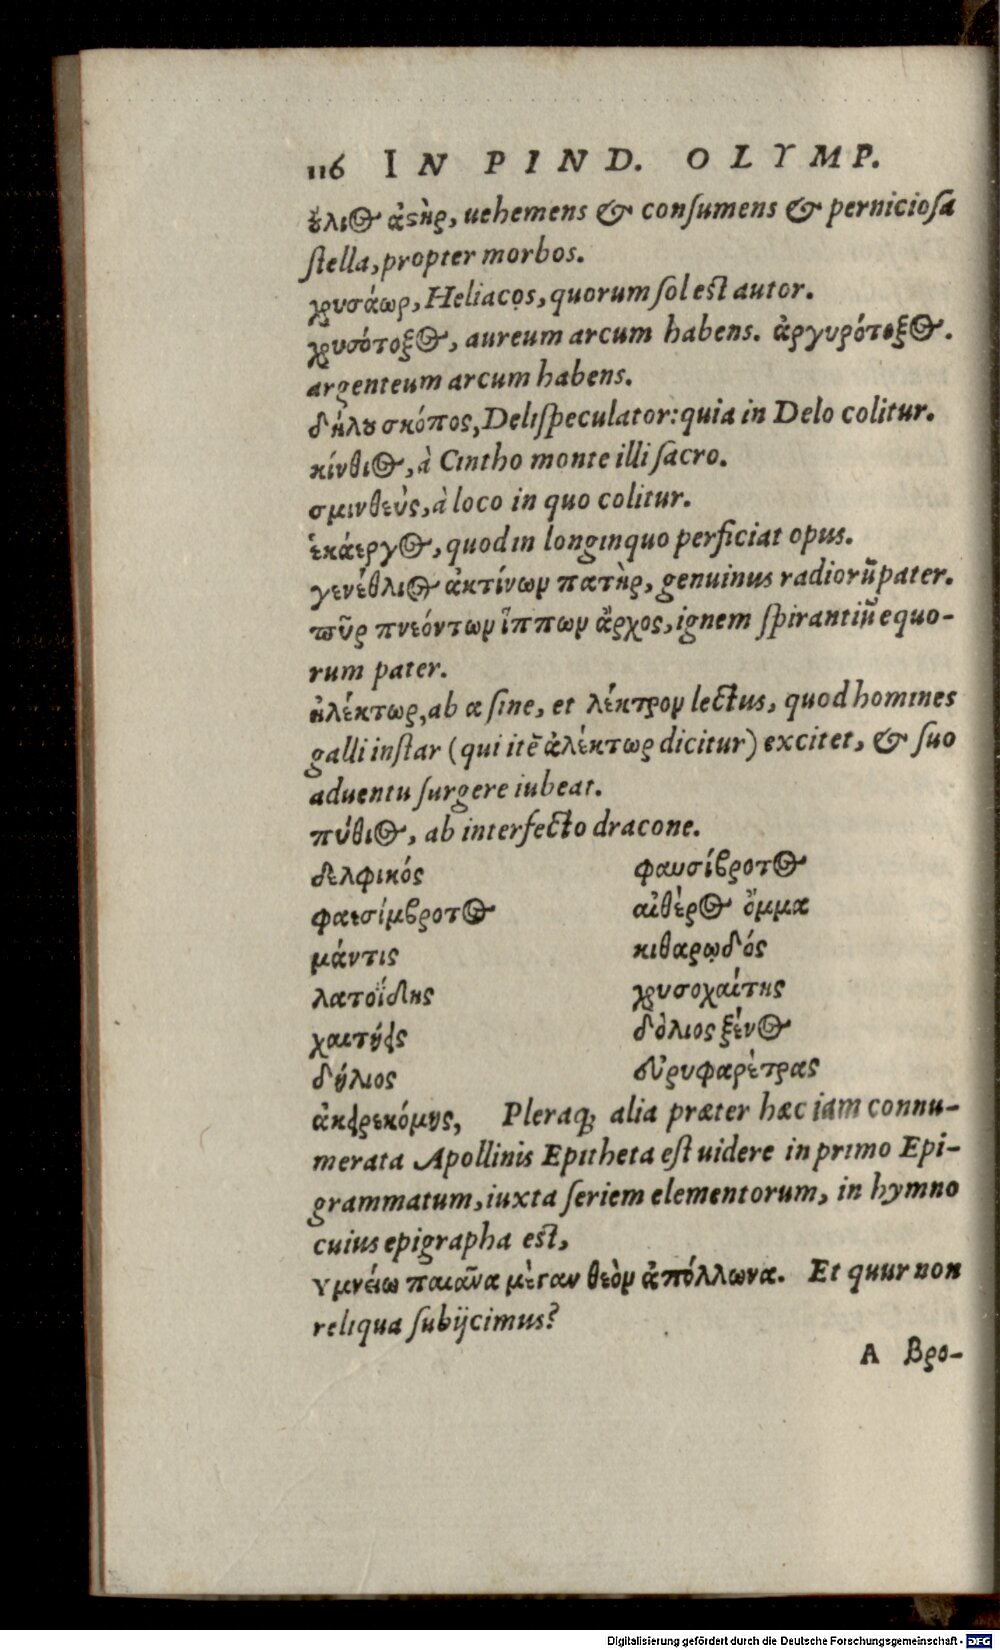 116 IN PIND. OLYMP.
ȣ̓́λιος ἀϛὴρ, uehemens & conſumens & pernicioſa
ſtella, propter morbos.
χρυσάωρ, Heliacos, quorum ſol eſt autor.
χρυσότοξος, aureum arcum habens. ἀργυρότοξος.
argenteum arcum habens.
δήλȣ σκόπος, Deli ſpeculator: quia in Delo colitur.
κίνθιος, à Cintho monte illi ſacro.
σμινθεὺς, à loco in quo colitur.
ἑκάεργος, quod in longinquo perficiat opus.
γενέθλιος ἀκτίνων πατὴρ, genuinus radiorū pater.
πῦρ πνεόντων ἵππων ἄρχος, ignem ſpirantiū equo-
rum pater.
ἠλέκτωρ, ab α ſine, et λέκτρον lectus, quod homines
galli inſtar (qui itē ἀλέκτωρ dicitur) excitet, & ſuo
aduentu ſurgere iubeat.
πύθιος, ab interfecto dracone.
δελφικός φαυσίβροτος
φαεσίμβροτος αἰθέρος ὄμμα
μάντις κιθαρῳδός
λατοΐδης χρυσοχαίτης
χαιτήεις δόλιος ξένος
δήλιος εὐρυφαρέτρας
ἀκειρεκόμης, Pleraq; alia præter hæc iam connu-
merata Apollinis Epitheta eſt uidere in primo Epi-
grammatum, iuxta ſeriem elementorum, in hymno
cuius epigrapha eſt,
Υμνείω παιᾶνα μὲγαν θεὸν ἀπόλλωνα. Et quur non
reliqua ſubijcimus?
Α Βρο-
Digitalisierung gefördert durch die Deutsche Forschungsgemeinschaft - DFG